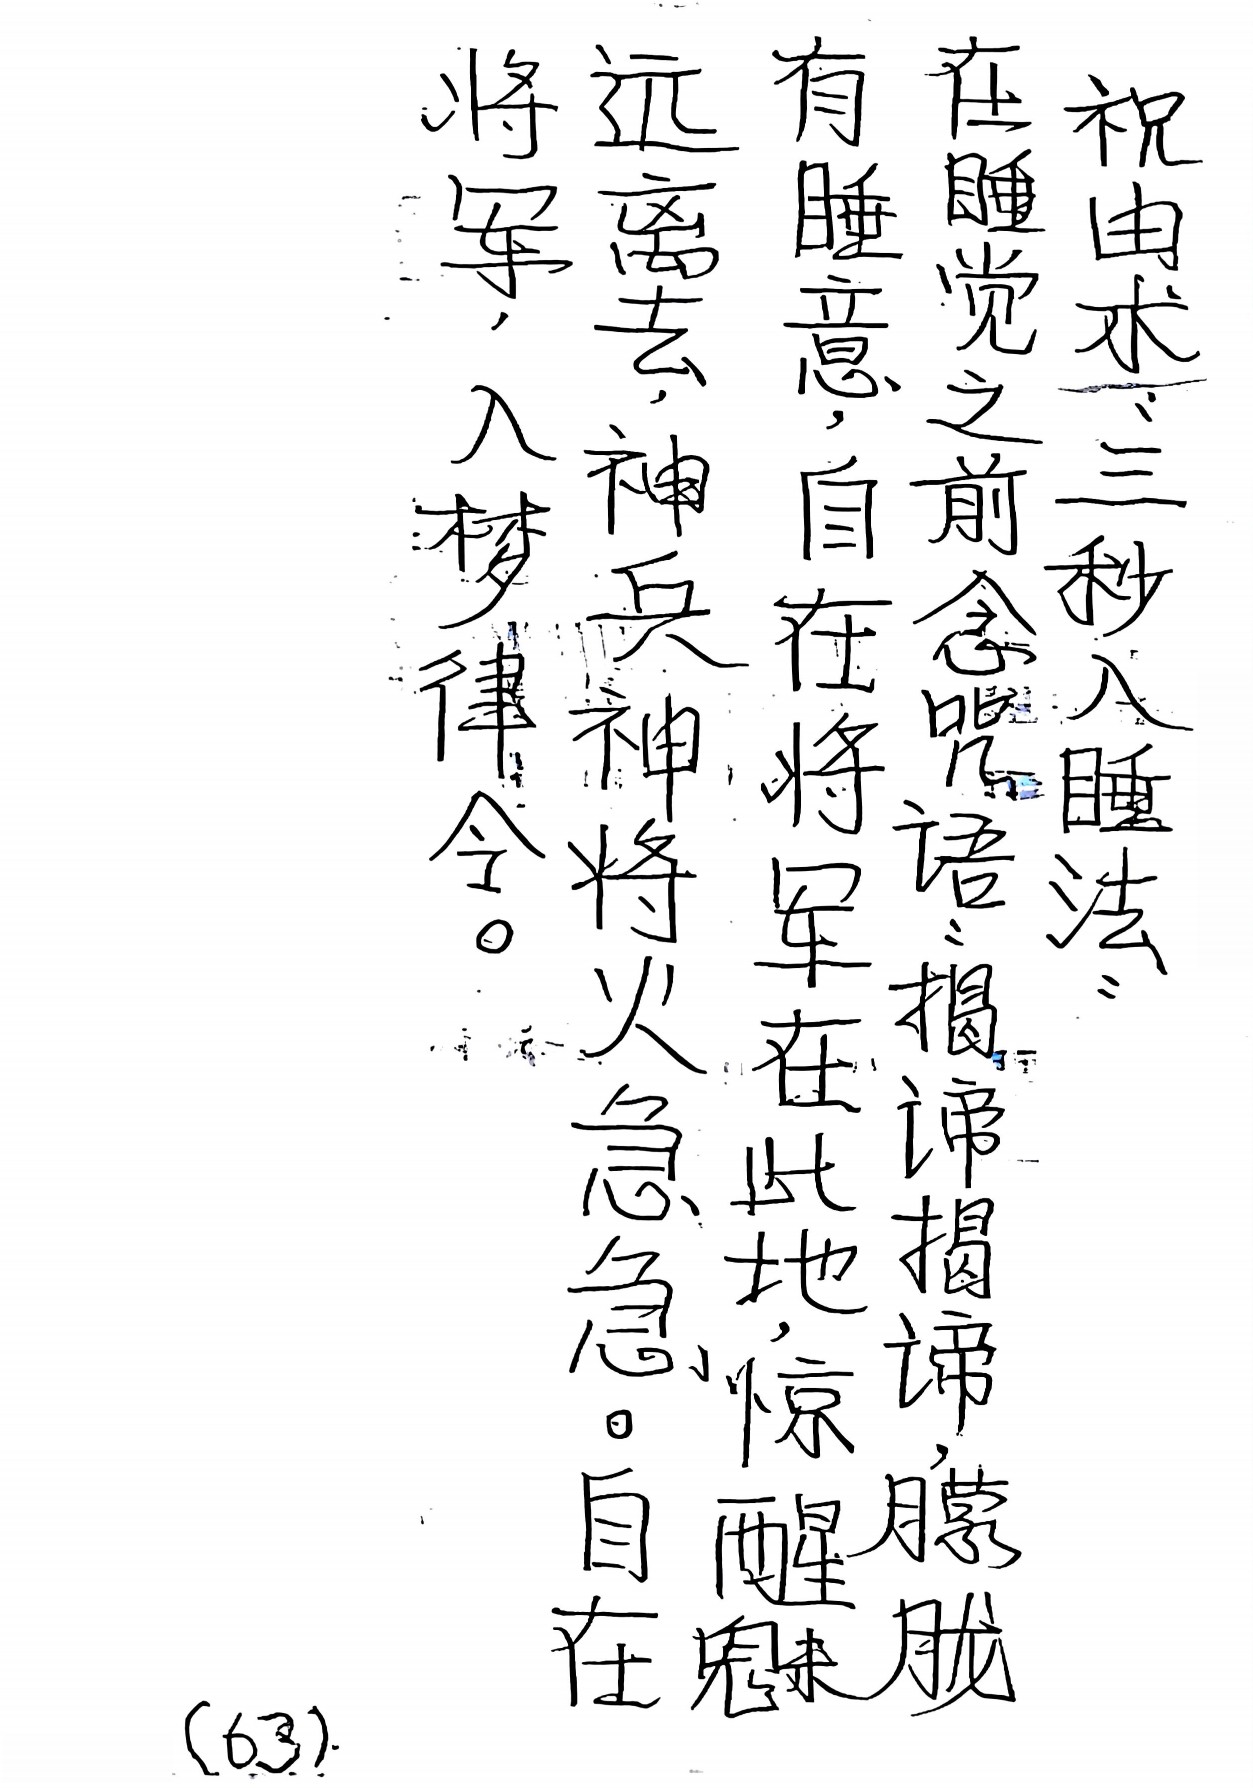 祝由术：三秒入睡法：
在睡觉之前念咒语：揭谛揭谛，朦胧
有睡意，自在将军在此地，惊醒鬼魅
远离去，神兵神将火急急。自在
将军，入梦律令。
(63)